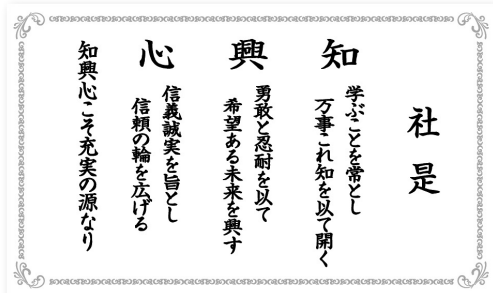 社是
知
学ぶことを常とし
万事これ知を以て開く
興
勇敢と忍耐を以て
希望ある未来を興す
心
信義誠実を旨とし
信頼の輪を広げる
知興心こそ充実の源なり